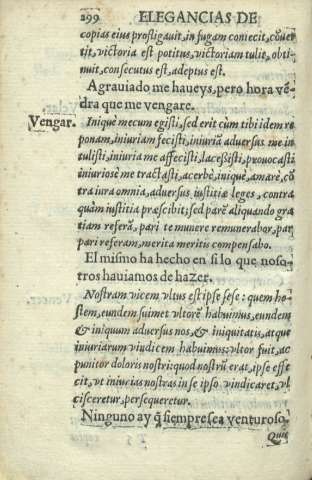 299 ELEGANCIAS DE
copias eius profligauit, in fugam coniecit, couer
tit, victoria est potitus, victoriam tulit, obti-
nuit, consecutus est, adeptus est.
Agrauiado me haueys, pero hora vē
dra que me vengare.
Vengar.
Iniquè mecum egisti, sed erit cùm tibi idem re
ponam, iniuriam fecisti, iniuriā aduersus me in
tulisti, iniuria me affecisti, lacessisti, prouocasti
iniuriosè me tractasti, acerbè, iniquè, amarè, cō
tra iura omnia, aduersus iustitiæ leges, contra
quàm iustitia præscibit; sed parē aliquando gra
tiam referā, pari te munere remunerabor, par
pari referam, merita meritis compensabo.
El mismo ha hecho en si lo que noso-
tros hauiamos de hazer.
Nostram vicem vltus est ipse sese: quem ho-
stem, eundem suimet vltorē habuimus, eundem
& iniquum aduersus nos, & iniquitatis, atque
iniuriarum vindicem habuimus; vltor fuit, ac
punitor doloris nostri: quod nostrū erat, ipse effe
cit, vt iniurias nostras in se ipso vindicaret, vl
cisceretur, persequeretur.
Ninguno ay q̃ siempre sea venturoso.
Quis